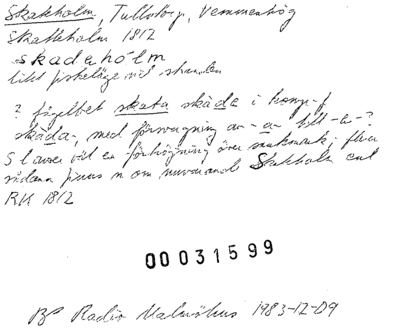 Skakholm, Tullstorp, Vemmenhög
Skatteholm 1812
skadahólm
litet fiskeläge vid stranden
? fågelbet skata skàda i komp-f
skàda-, med försvagning av -a- till -e-?
S l avser väl en förhöjning över sankmark; flera
sådana finns n om nuvarande Skakholm enl
RK 1812
00031599
BP Radio Malmöhus 1983-12-09